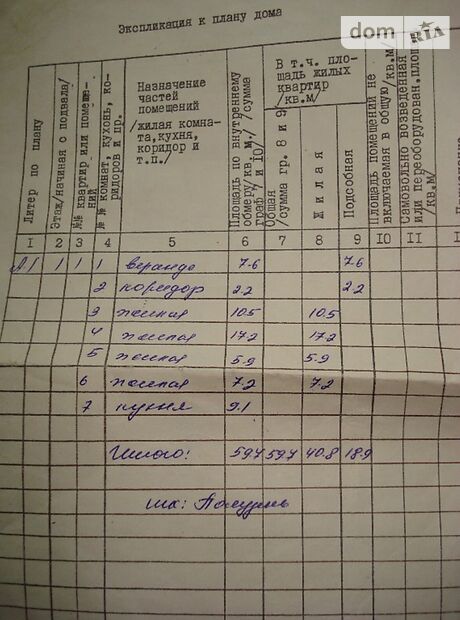 Экспликация к плану дома
dom RIA
Литер по плану
Этаж/начиная с подвала/
№№ квартир или помеще-
ний
№ № комнат, кухонь, ко-
ридоров и пр.
Назначение
частей
помещений
/жилая комна-
та,кухня,
коридор и
т.п./
Площадь по внутреннему
обмеру/кв. м./ /сумма
граф 7 и 10/
В т.ч. пло-
щадь жилых
квартир
/кв.м/
Общая
/сумма гр. 8 и 9
Жилая
Подсобная
Площадь помещений не
включаемая в общую/кв.м/
Самовольно возведенная
или переоборудован.площ
/кв.м/
I 2 3 4 5 6 7 8 9 IO II
А1 1 1 1 веранда 7.6 7.6
2 коридор 2.2 2.2
3 жилая 10.5 10.5
4 жилая 17.2 17.2
5 жилая 5.9 5.9
6 жилая 7.2 7.2
7 кухня 9.1
Итого: 59.7 59.7 40.8 18.9